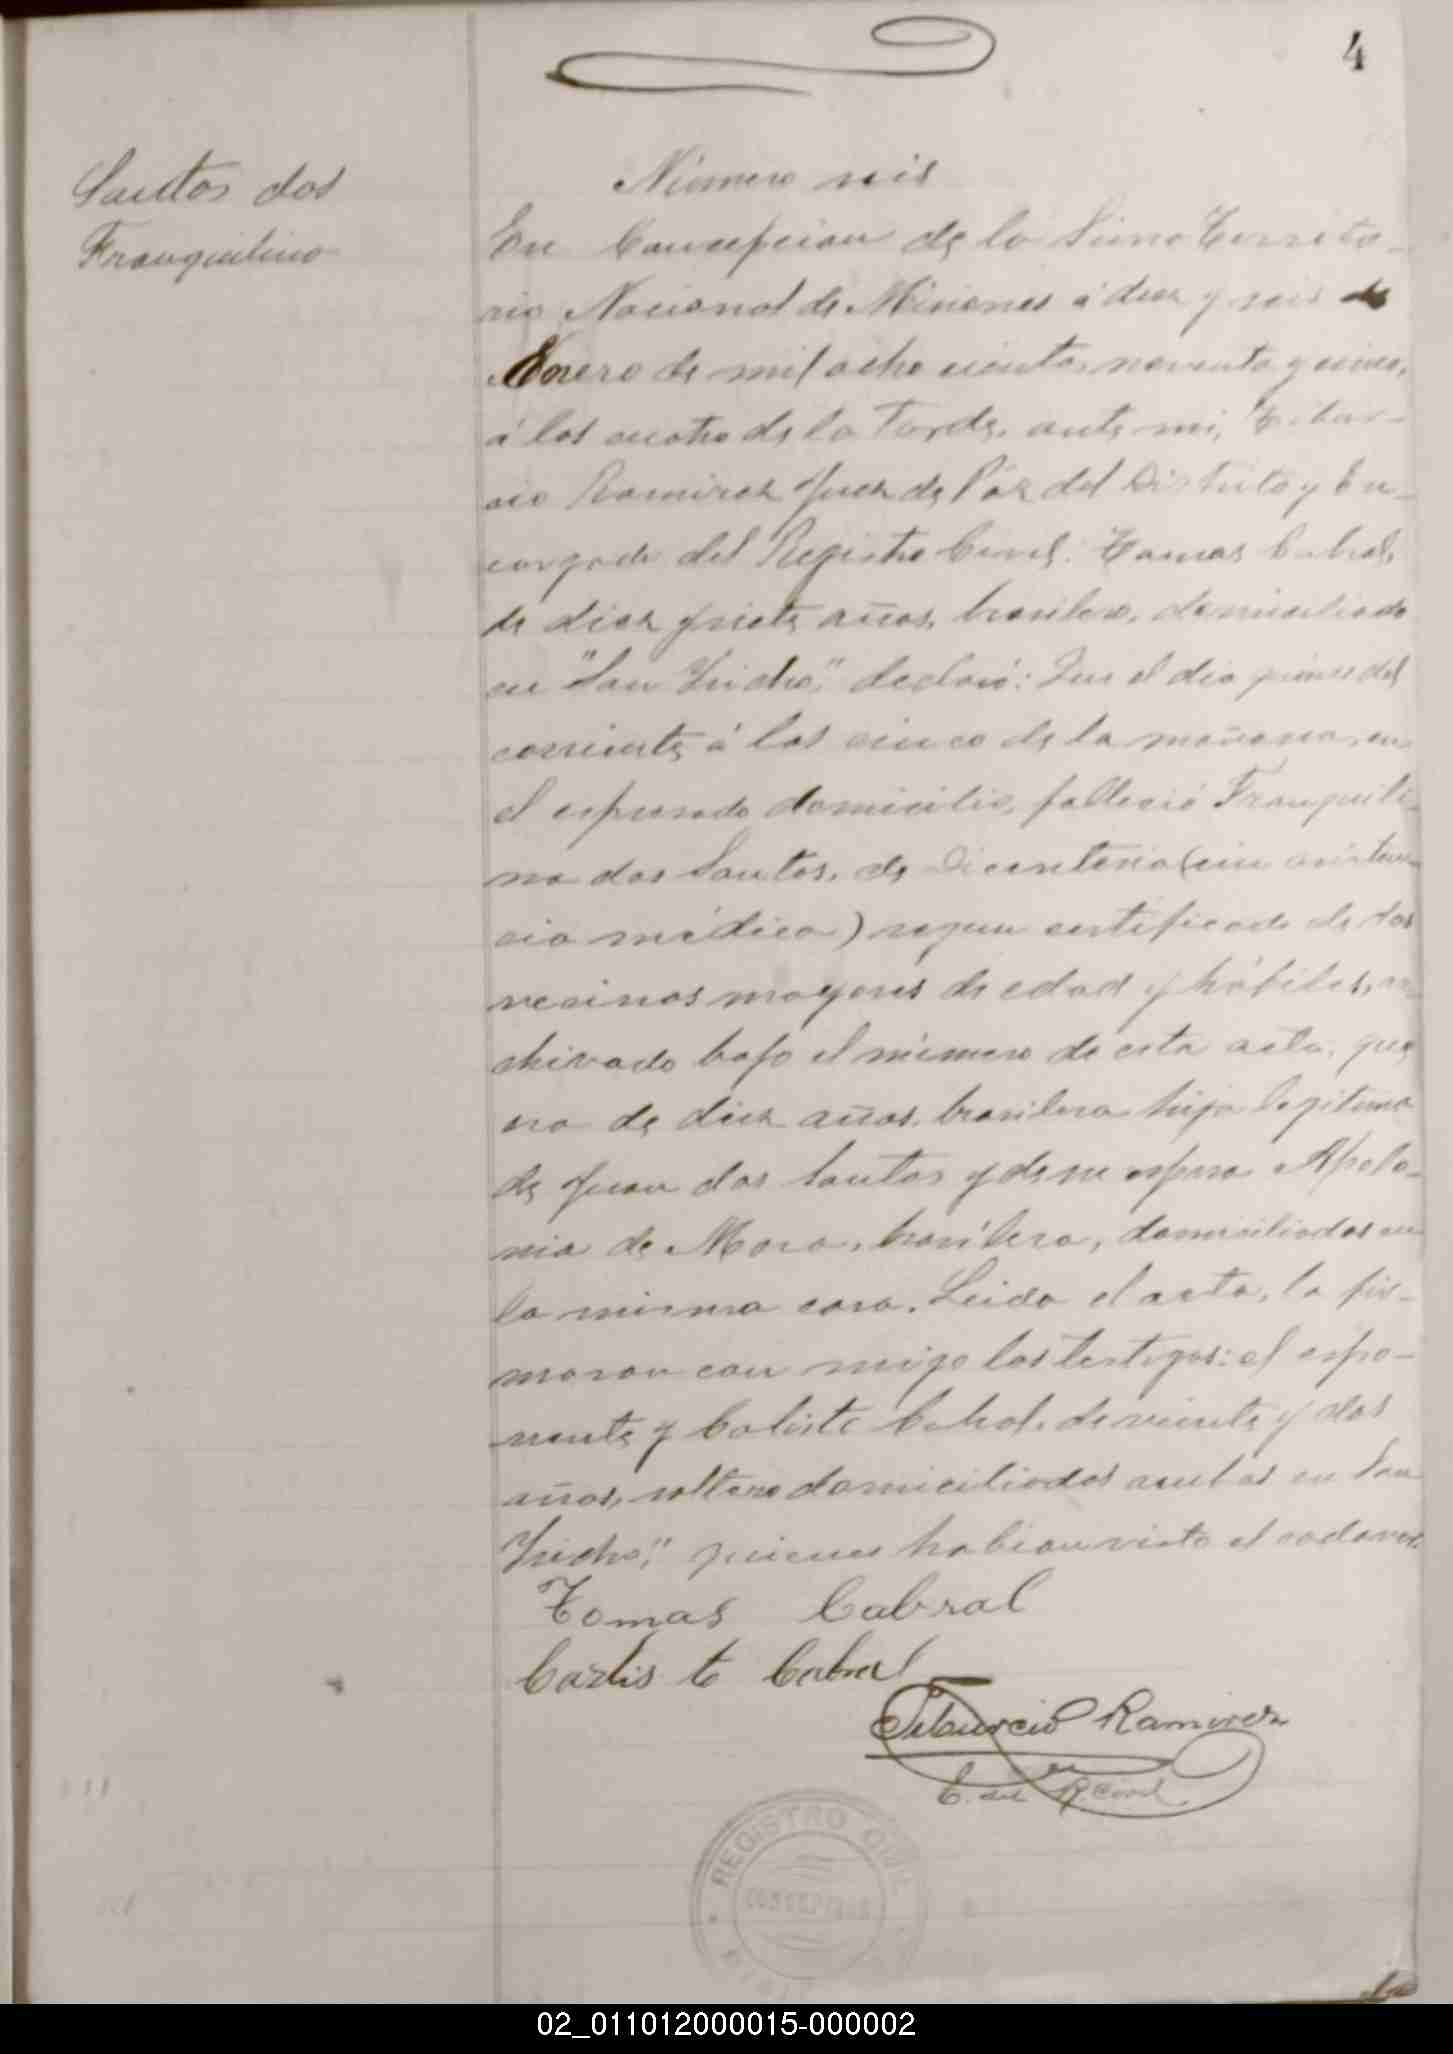 4
Santos dos
Franquilino
Número seis
En Concepcion de la Sierra Territo-
rio Nacional de Misiones á diez y seis de
Enero de mil ocho cientos noventa y cinco,
á las cuatro de la tarde, ante mi, Tibur-
cio Ramirez Juez de Páz del Distrito y En-
cargado del Registro Civil: Tomas Cabral,
de diez y siete años, brasilero, domiciliado
en "San Isidro," declaró: Que el dia quince del
corriente á las cinco de la mañana, en
el espresado domicilio, falleció Franquili-
na dos Santos, de Dicenteria (sin asisten-
cia médica) segun certificado de dos
vecinos mayores de edad y hábiles, ar-
chivado bajo el número de esta acta, que
era de diez años, brasilera hija legitima
de Juan dos Santos y de su esposa Apolo-
nia de Mora, brasilera, domiciliados en
la misma casa. Leida el acta, la fir-
maron con migo los testigos: el espo-
nente y Calisto Cabral, de veinte y dos
años, soltero domiciliados ambos en "San
Isidro," quienes habian visto el cadaver.
Tomas Cabral
Carlis to Cabral
Tiburcio Ramirez
E. del R. Civil
REGISTRO CIVIL
CONCEPCION
02_011012000015-000002